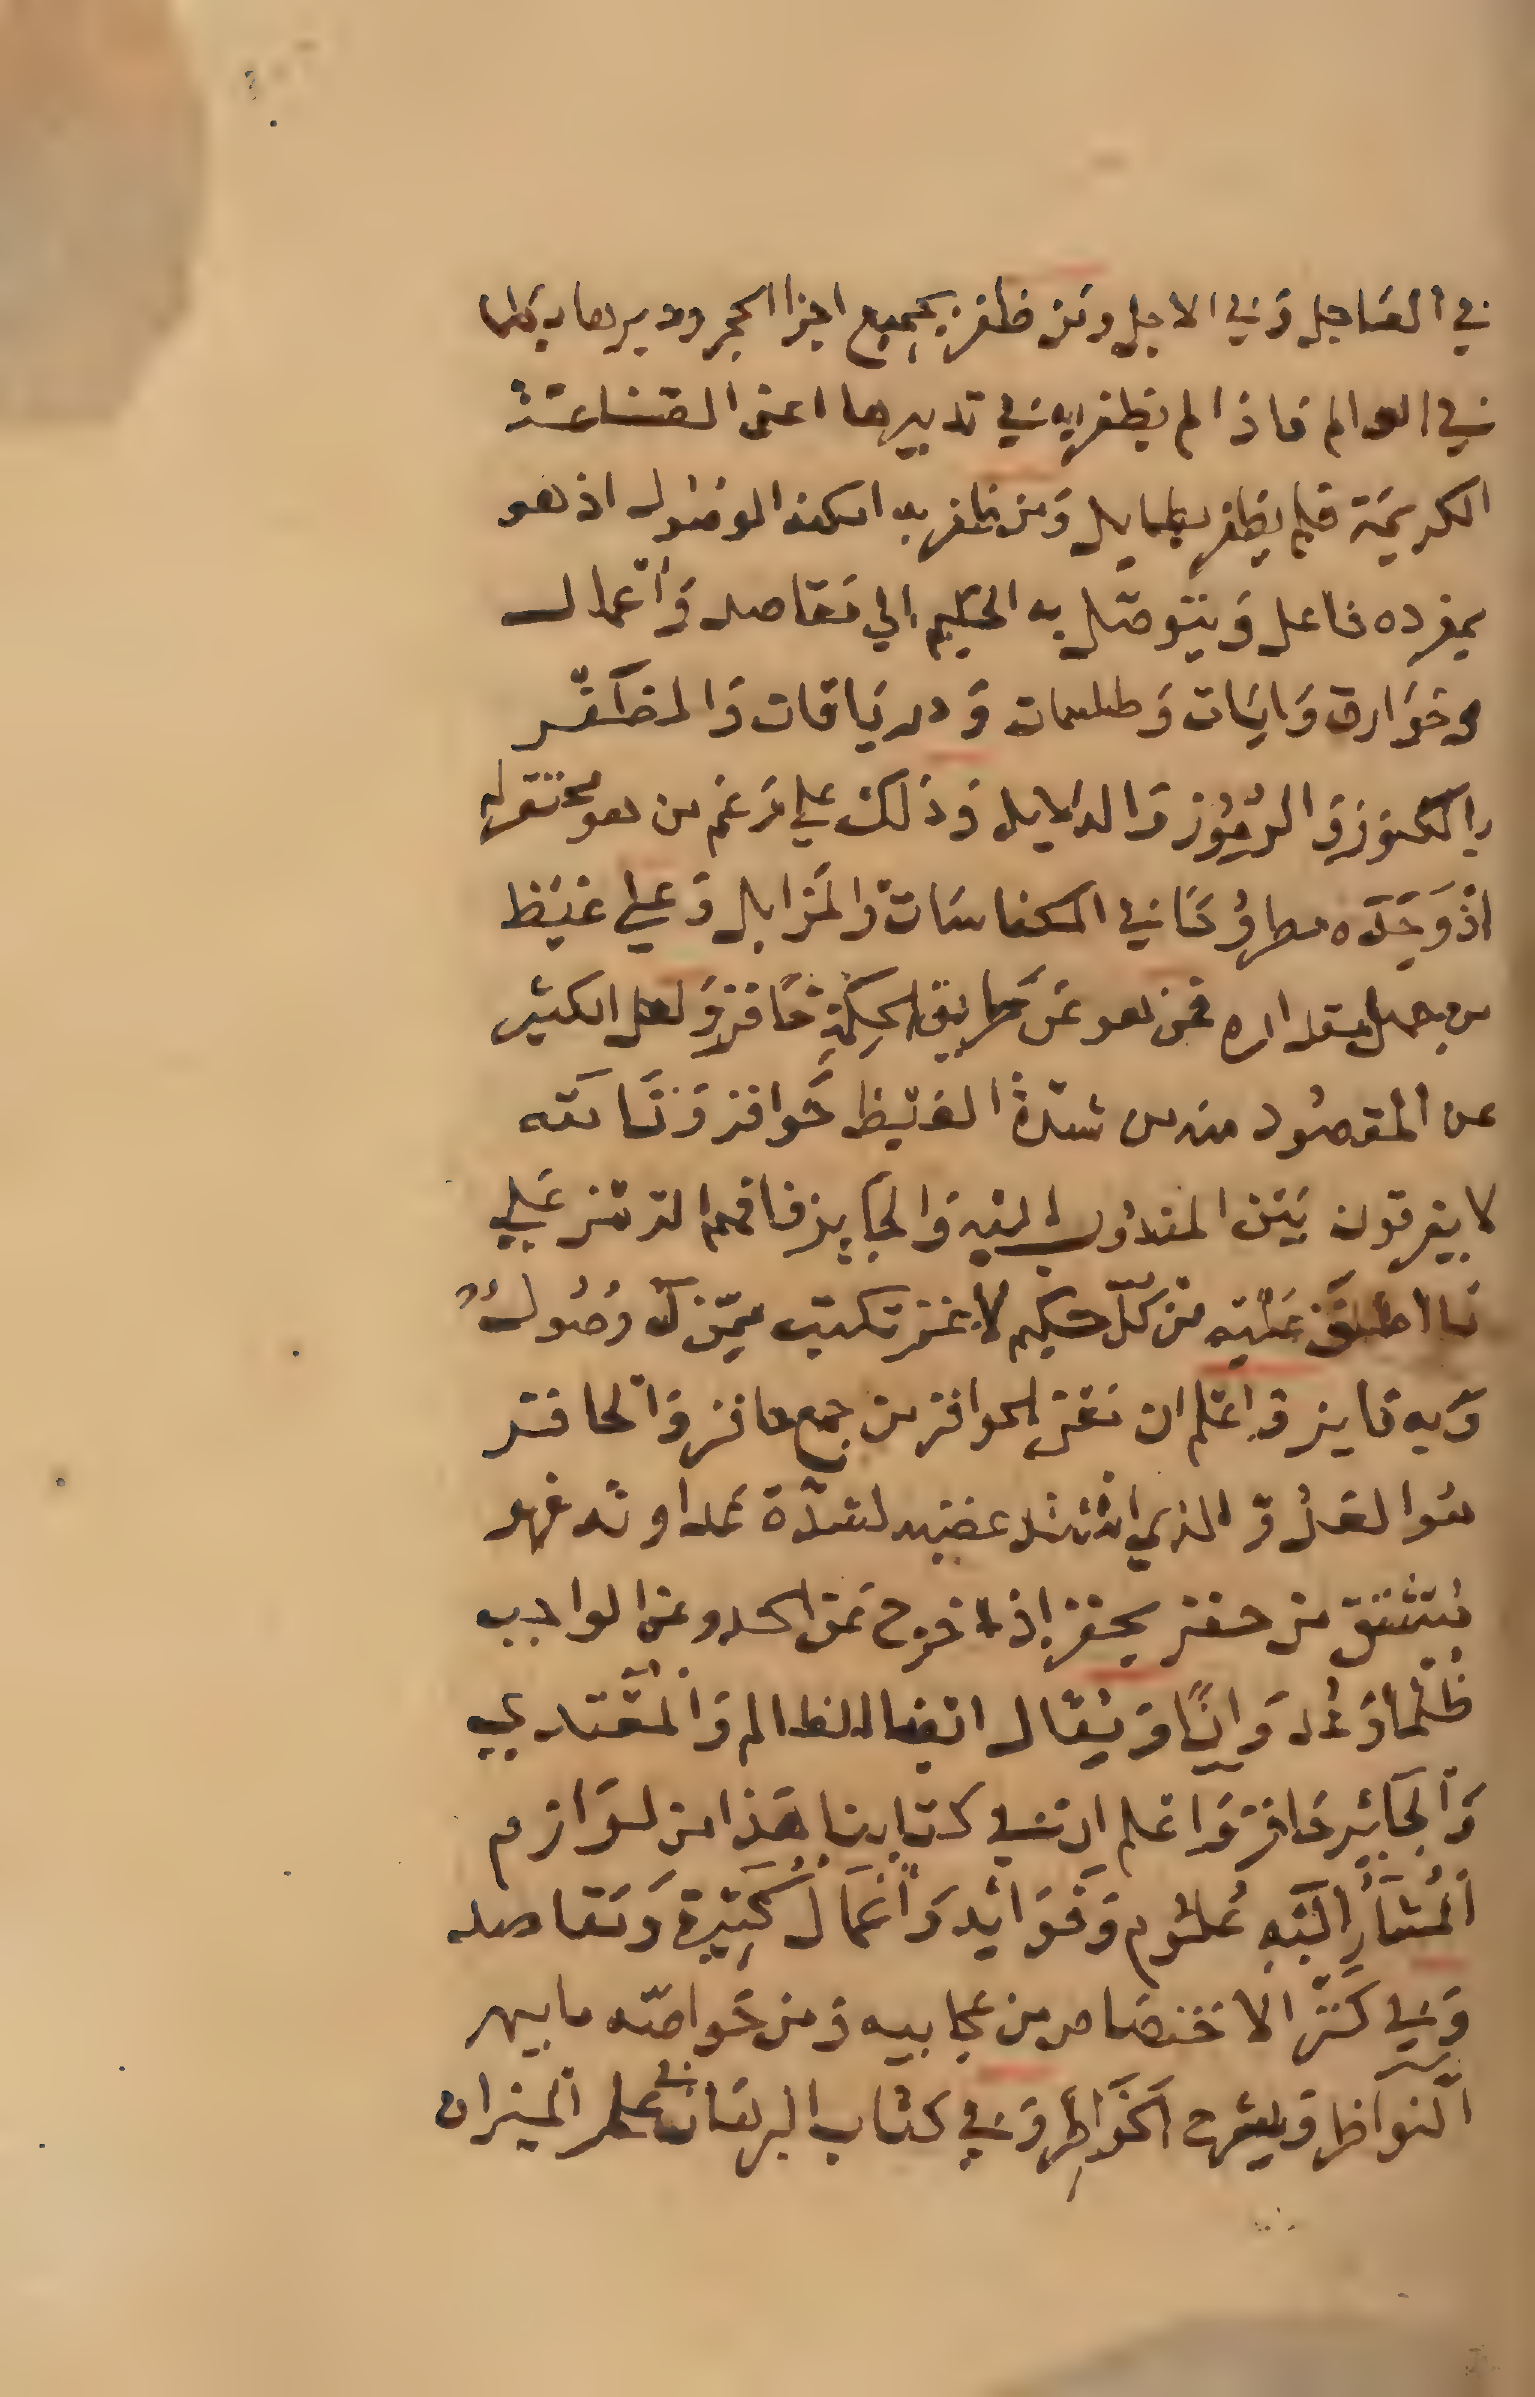 في العاجل وفي الاجل ومن ظفر بجميع اجزا الحجر ودبرها بكلها
في العالم فاذا لم يظفر به في تدبيرها اعني القناعة
الكريمة فلم يظفر بطايل ومن ظفر به امكنه الوصول اذ هو
بمفرده فاعل ويتوصل به الحكيم الي مقاصد وأعمال
وخوارق وايات وطلسمات ودرياقات والمظفر
بالكنوز والرموز والدلايل وذلك علي زعم من هو محتقر له
اذ وجده مطروحا في الكناسات والمزابل وعلي غيظ
من جهل مقداره فمن هو عن طريق الحكمة حافز ولعل الكثير
عن المقصود منه من شدة الغيظ حوافز
لا يفرقون بين المندوب اليه والجايز فافهم الرمز علي
ما اطلق عليه من كل حكيم لا عن تكسب يميز له وصول
وبه فايز واعلم ان معني الحوافز من جمع حافز والحافز
هو العدو الذي اشتد غضبه لشدة عداوته فهو
يشتق من حفز يحفز اذا خرج عن الحد وعن الواجب
ظلما وعدوانا ويقال ايضا للظالم والمعتدي
والجاير حافز واعلم ان في كتابنا هذا من لوازم
المشار اليه علوم وفوائد وأعمال كثيرة ومقاصد
وفي كنز الاختصاص من عجايبه ومن خواصه ما يبهر
النواظر ويشرح الخواطر وفي كتاب البرهان في علم الميزان